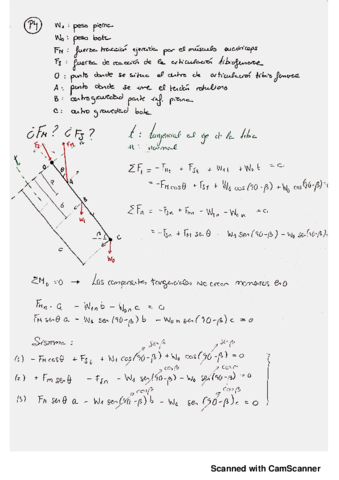 P4
W₁: peso pierna
W₀: peso bota
F_M: fuerza tracción ejercida por el músculo cuadriceps
F_J: fuerza de reacción de la articulación tibiofemoral
O: punto donde se situa el centro de articulación tibio femoral
A: punto donde se une el tendón rotuliano
B: centro gravedad parte inf. pierna
C: centro gravedad bota
¿F_M? ¿F_J?
t: tangencial al eje de la tibia
n: normal
ΣF_t = -F_Mt + F_Jt + W_1t + W_0t = 0
= -F_M cosθ + F_Jt + W_1 cos(90-β) + W_0 cos(90-β)
ΣF_n = -F_Jn + F_Mn - W_1n - W_0n = 0
= -F_Jn + F_M senθ - W_1 sen(90-β) - W_0 sen(90-β)
ΣM_0 = 0 → Las componentes tangenciales no crean momentos en 0
F_Mn · a - W_1n b - W_0n c = 0
F_M senθ a - W_1 sen(90-β) b - W_0 sen(90-β) c = 0
Sistema:
(1) - F_M cosθ + F_Jt + W_1 cos(90-β) + W_0 cos(90-β) = 0
(2) + F_M senθ - F_Jn - W_1 sen(90-β) - W_0 sen(90-β) = 0
(3) F_M senθ a - W_1 sen(90-β) b - W_0 sen(90-β) c = 0
Scanned with CamScanner